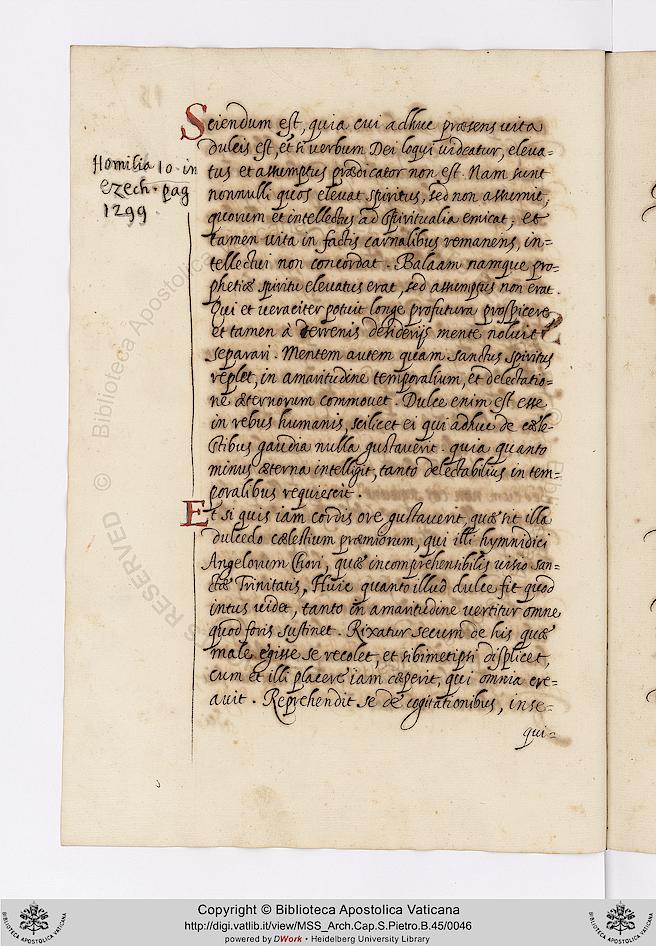 Homilia 10. in
ezech. pag
1299.
Sciendum est, quia cui adhuc præsens vita
dulcis est, et si verbum Dei loqui videatur, eleva=
tus et assumptus prædicator non est. Nam sunt
nonnulli quos elevat spiritus, sed non assumit,
quorum et intellectus ad spiritualia emicat, et
tamen vita in factis carnalibus remanens, in=
tellectui non concordat. Balaam namque pro=
phetiæ spiritu elevatus erat, sed assumptus non erat.
Qui et veraciter potuit longe profutura prospicere
et tamen à terrenis desiderijs mente noluit
separari. Mentem autem quam sanctus spiritus
replet, in amaritudine temporalium, et delectatio=
ne æternorum commovet. Dulce enim est esse
in rebus humanis, scilicet ei qui adhuc de cæle=
stibus gaudia nulla gustaverit. quia quanto
minus æterna intelligit, tanto delectabilius in tem=
poralibus requiescit.
Et si quis iam cordis ore gustaverit, quæ sit illa
dulcedo cælestium præmiorum, qui illi hymnidici
Angelorum Chori, quæ incomprehensibilis visio san=
ctæ Trinitatis, Huic quanto illud dulce fit quod
intus videt, tanto in amaritudine vertitur omne
quod foris sustinet. Rixatur secum de his quæ
male egisse se recolet, et sibimetipsi displicet,
cum et illi placere iam cæperit, qui omnia cre=
avit. Reprehendit se de cogitationibus, inse=
qui=
© Biblioteca Apostolica
RESERVED
Copyright © Biblioteca Apostolica Vaticana
http://digi.vatlib.it/view/MSS_Arch.Cap.S.Pietro.B.45/0046
powered by DWork • Heidelberg University Library